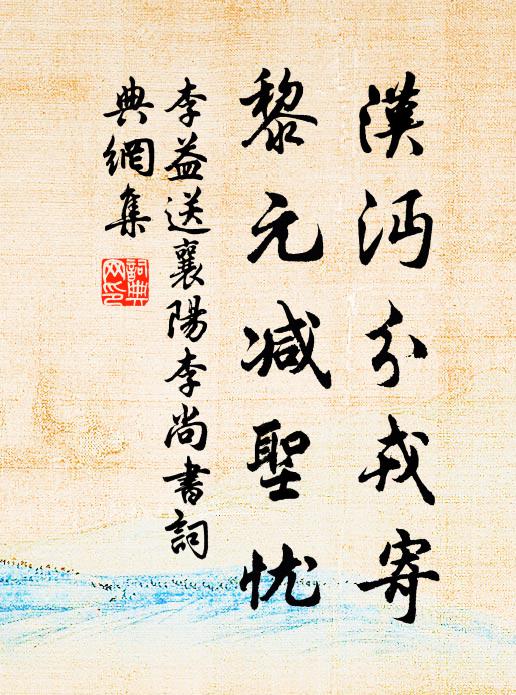 漢沔分戎寄
黎元减聖忧
李益送襄陽李尚書詞
典網集
詞典网印